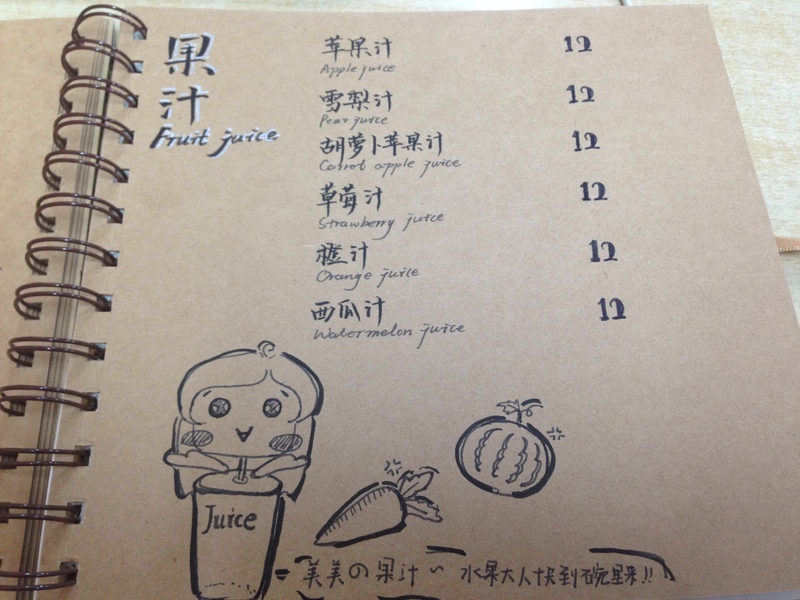 果汁
Fruit juice
苹果汁 12
Apple juice
雪梨汁 12
Pear juice
胡萝卜苹果汁 12
Carrot apple juice
草莓汁 12
Strawberry juice
橙汁 12
Orange juice
西瓜汁 12
Watermelon juice
Juice
美美の果汁~ 水果大人快到碗里来!!